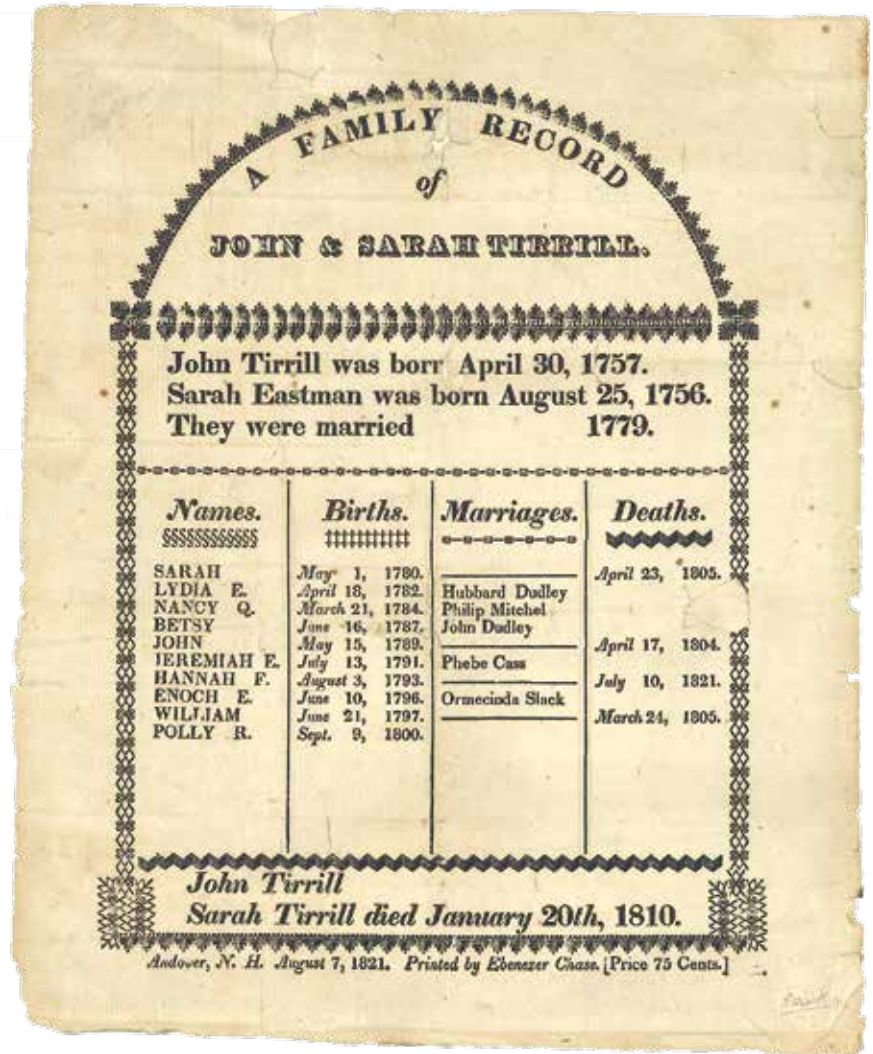 A FAMILY RECORD
of
JOHN & SARAH TIRRILL.
John Tirrill was borr April 30, 1757.
Sarah Eastman was born August 25, 1756.
They were married 1779.
Names. Births. Marriages. Deaths.
SARAH May 1, 1780. April 23, 1805.
LYDIA E. April 18, 1782. Hubbard Dudley
NANCY Q. March 21, 1784. Philip Mitchel
BETSY June 16, 1787. John Dudley
JOHN May 15, 1789. April 17, 1804.
JEREMIAH E. July 13, 1791. Phebe Cass
HANNAH F. August 3, 1793. July 10, 1821.
ENOCH E. June 10, 1796. Ormecinda Slack
WILLIAM June 21, 1797. March 24, 1805.
POLLY R. Sept. 9, 1800.
John Tirrill
Sarah Tirrill died January 20th, 1810.
Andover, N. H. August 7, 1821. Printed by Ebenezer Chase. [Price 75 Cents.]